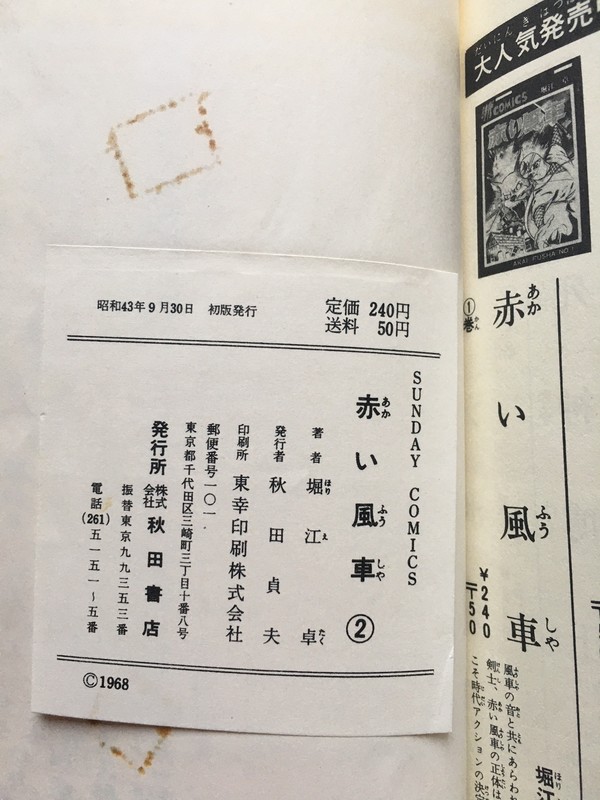 大人気発売
COMICS 堀江 卓
赤い風車
AKAI FUSHA NO.1
①巻
赤い風車
¥240
〒50
堀江
風車の音と共にあらわれ
剣士、赤い風車の正体は
こそ時代アクションの決
昭和43年9月30日 初版発行
定価 240円
送料 50円
SUNDAY COMICS
赤い風車②
著者 堀江 卓
発行者 秋田貞夫
印刷所 東幸印刷株式会社
郵便番号一〇一
東京都千代田区三崎町三丁目十番八号
発行所 株式会社 秋田書店
振替東京九九三五三番
電話(261)五一五一〜五番
©1968